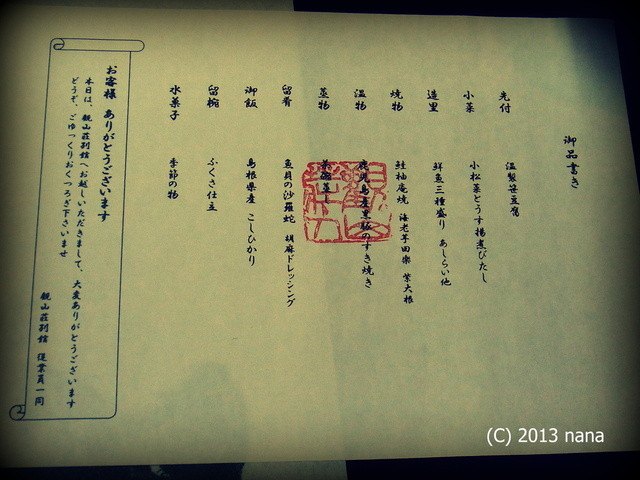 御品書き
先付 温製笹豆腐
小菜 小松菜とうす揚煮びたし
造里 鮮魚三種盛り あしらい他
焼物 鮭柚庵焼 海老芋田楽 紫大根
温物 鹿児島産黒豚のすき焼き
蒸物 茶碗蒸し
留肴 魚貝の沙羅蛇 胡麻ドレッシング
御飯 島根県産 こしひかり
留椀 ふくさ仕立
水菓子 季節の物
お客様 ありがとうございます
本日は、観山荘別館へお越しいただきまして、大変ありがとうございます
どうぞ、ごゆっくりおくつろぎ下さいませ
観山荘別館 従業員一同
(C) 2013 nana